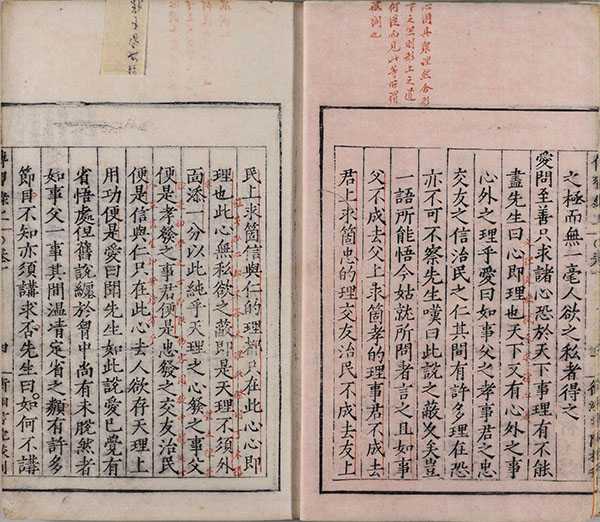 心固具衆理然合形
下之則形上之道
何從而見此等所謂
之極而無一毫人欲之私者得之
愛問至善只求諸心恐於天下事理有不能
盡先生曰心即理也天下又有心外之事
心外之理乎愛曰如事父之孝事君之忠
交友之信治民之仁其間有許多理在恐
亦不可不察先生嘆曰此說之蔽久矣豈
一語所能悟今姑就所問者言之且如事
父不成去父上求箇孝的理事君不成去
君上求箇忠的理交友治民不成去友上
民上求箇信與仁的理都只在此心心即
理也此心無私欲之蔽即是天理不須外
面添一分以此純乎天理之心發之事父
便是孝發之事君便是忠發之交友治民
便是信與仁只在此心去人欲存天理上
用功便是愛曰聞先生如此說愛已覺有
省悟處但舊說纏於胷中尚有未脫然者
如事父一事其間溫凊定省之類有許多
節目不知亦須講求否先生曰如何不講